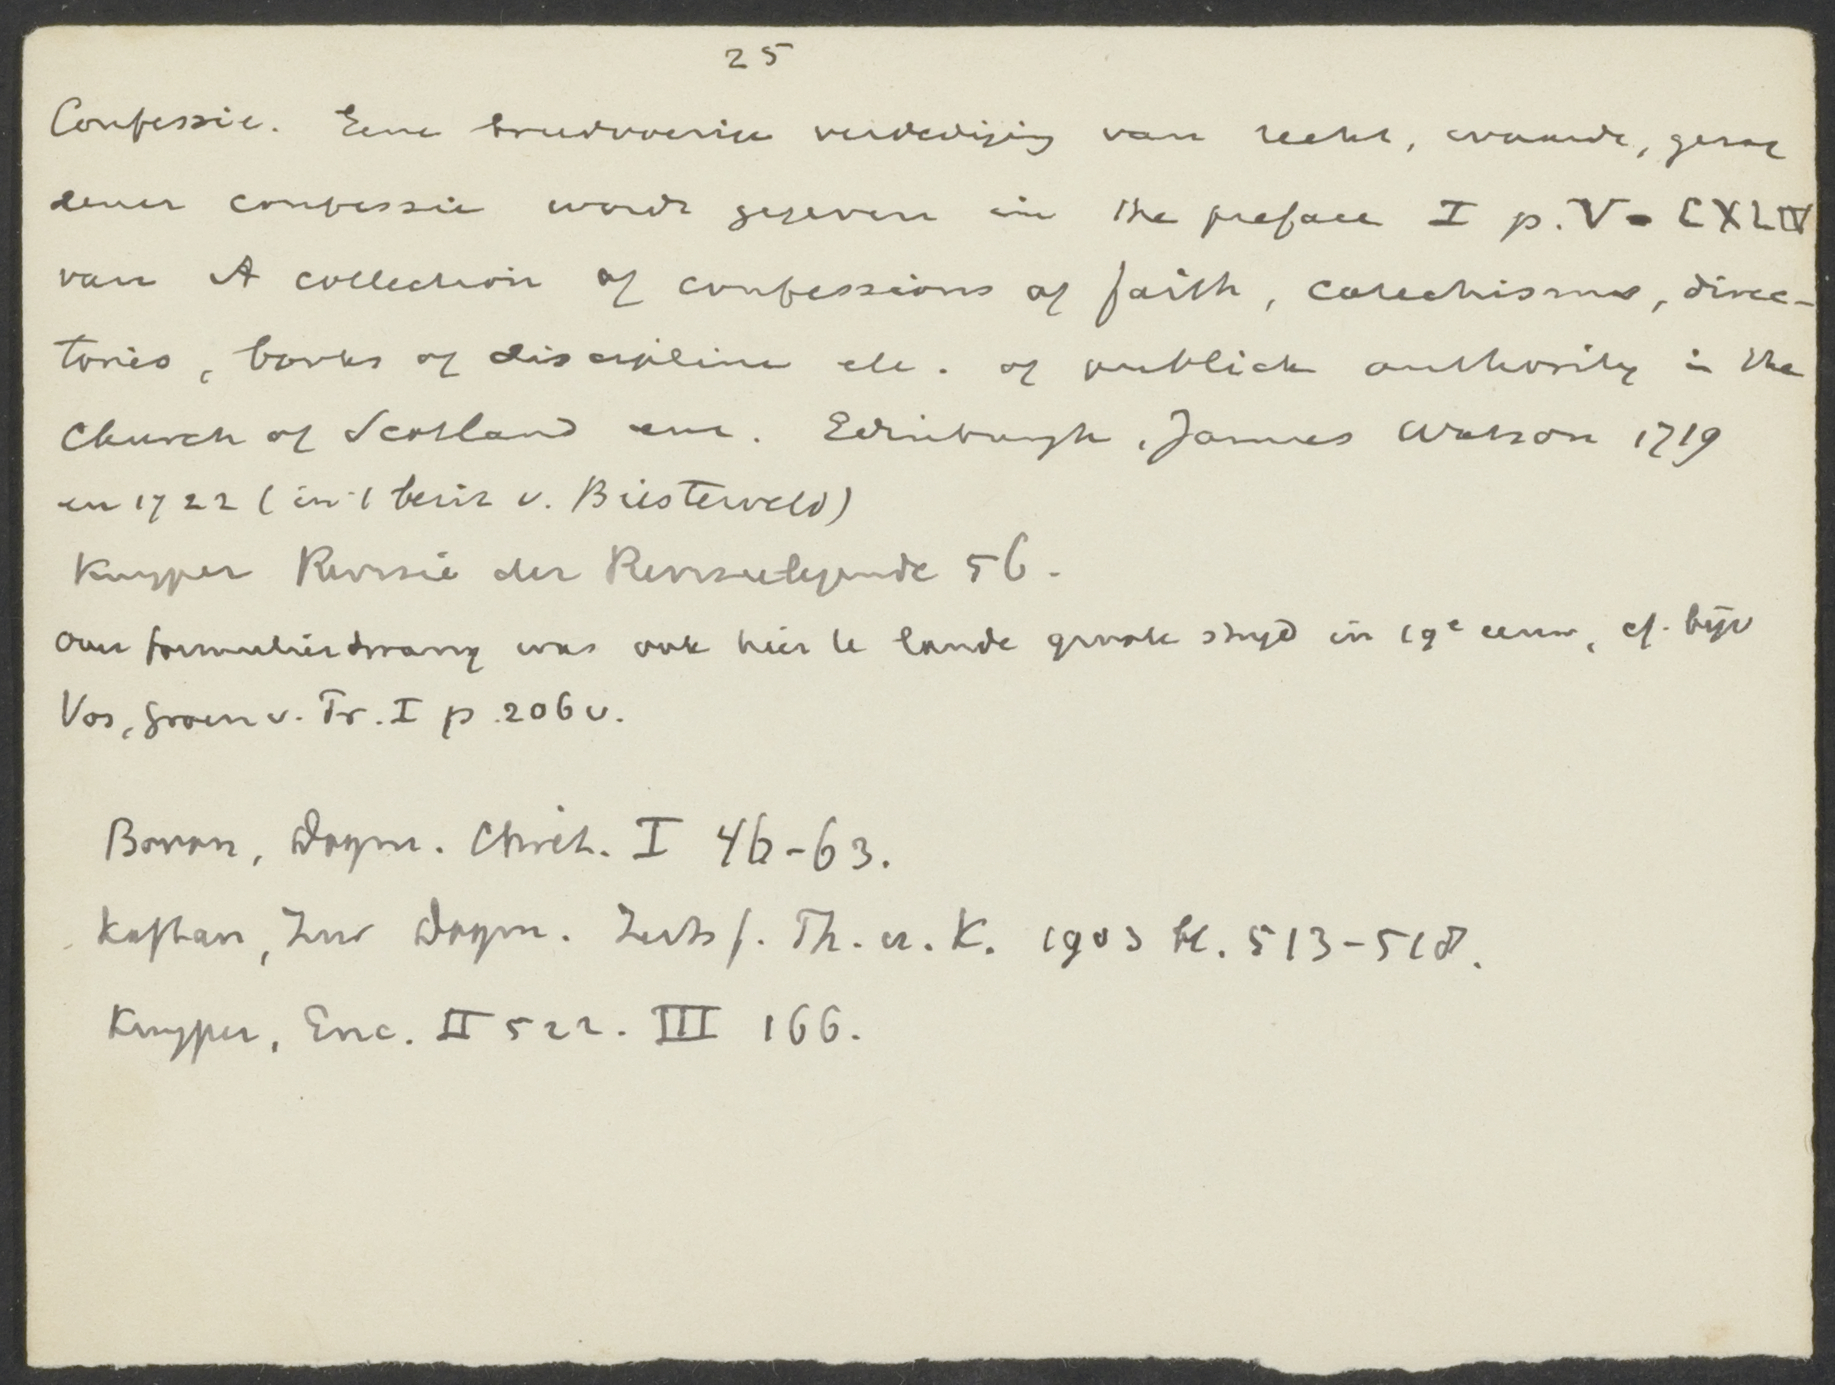 25
Confessie. Eene breedvoerige verdediging van recht, waarde, gezag
eener confessie wordt gegeven in the preface I p. V - CXLIV
van A collection of confessions of faith, catechisms, direc-
tories, books of discipline etc. of publick authority in the
Church of Scotland enz. Edinburgh, James Watson 1719
en 1722 (in 't bezit v. Biesterveld)
Kuyper Revisie der Revisielegende 56.
Over formulierdwang was ook hier te lande groote strijd in 19e eeuw, cf. bijv
Vos, Groen v. Pr. I p. 206 v.
Bovon, Dogm. Chrét. I 46-63.
Kaftan, Zur Dogm. Zeits f. Th. u. K. 1903 bl. 513-518.
Kuyper, Enc. II 522. III 166.